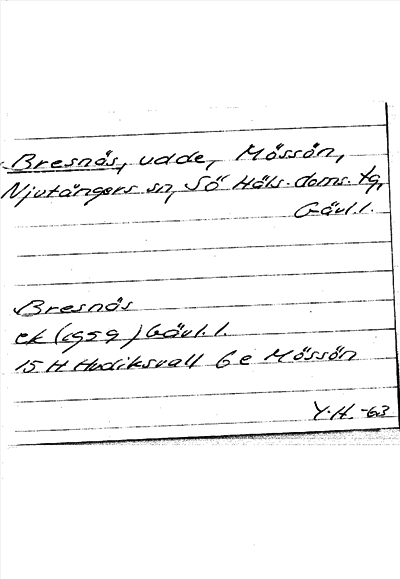 Bresnäs, udde, Mössön,
Njutångers sn, Sö Häls. doms. tg,
Gävl. l.
Bresnäs
ek (1959) Gävl. l.
15 H Hudiksvall 6 e Mössön
Y.H. -63